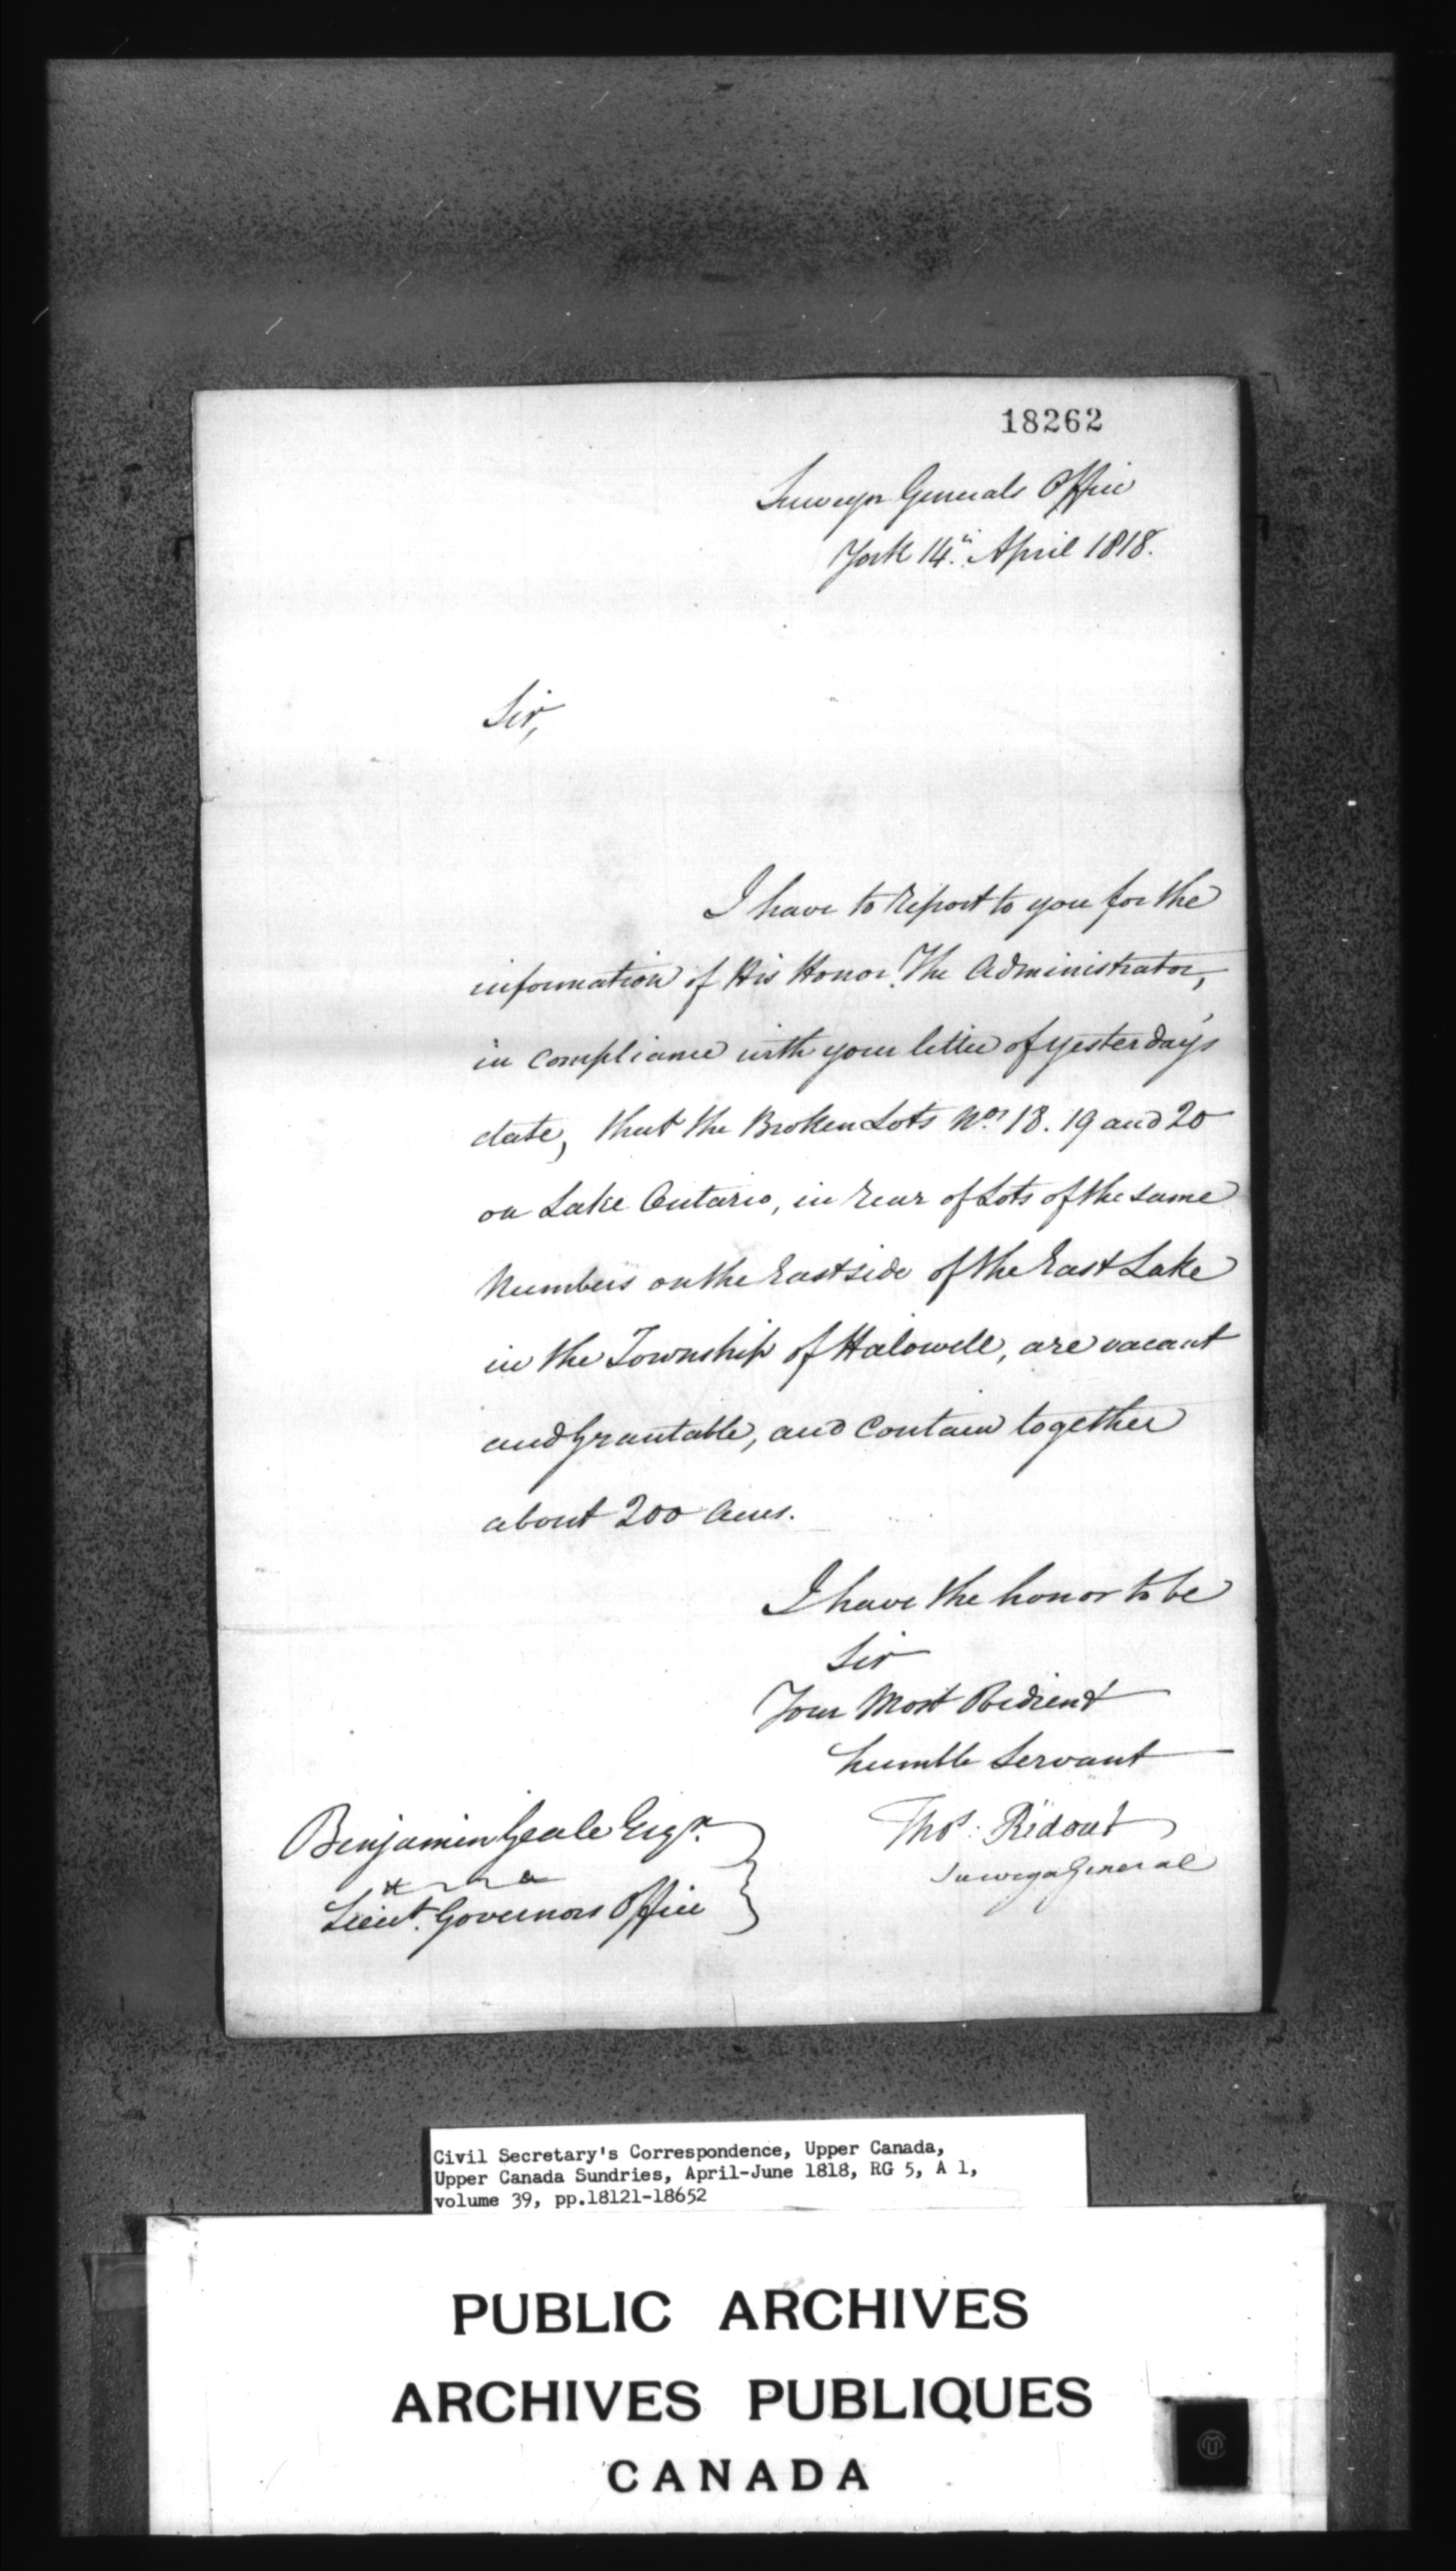 18262
Surveyor Generals Office
York 14th April 1818.
Sir,
I have to Report to you for the
information of His Honor The Administrator,
in compliance with your letter of yesterday's
date, that the Broken Lots Nos 18. 19 and 20
on Lake Ontario, in rear of Lots of the same
Numbers on the East side of the East Lake
in the Township of Halowell, are vacant
and Grantable, and contain together
about 200 Acres.
I have the honor to be
Sir
Your Most Obedient
humble Servant
Thos: Ridout
Surveyor General
Benjamin Geale Esqr.
&c &c &c
Lieut. Governors Office
Civil Secretary's Correspondence, Upper Canada,
Upper Canada Sundries, April-June 1818, RG 5, A 1,
volume 39, pp.18121-18652
PUBLIC ARCHIVES
ARCHIVES PUBLIQUES
CANADA